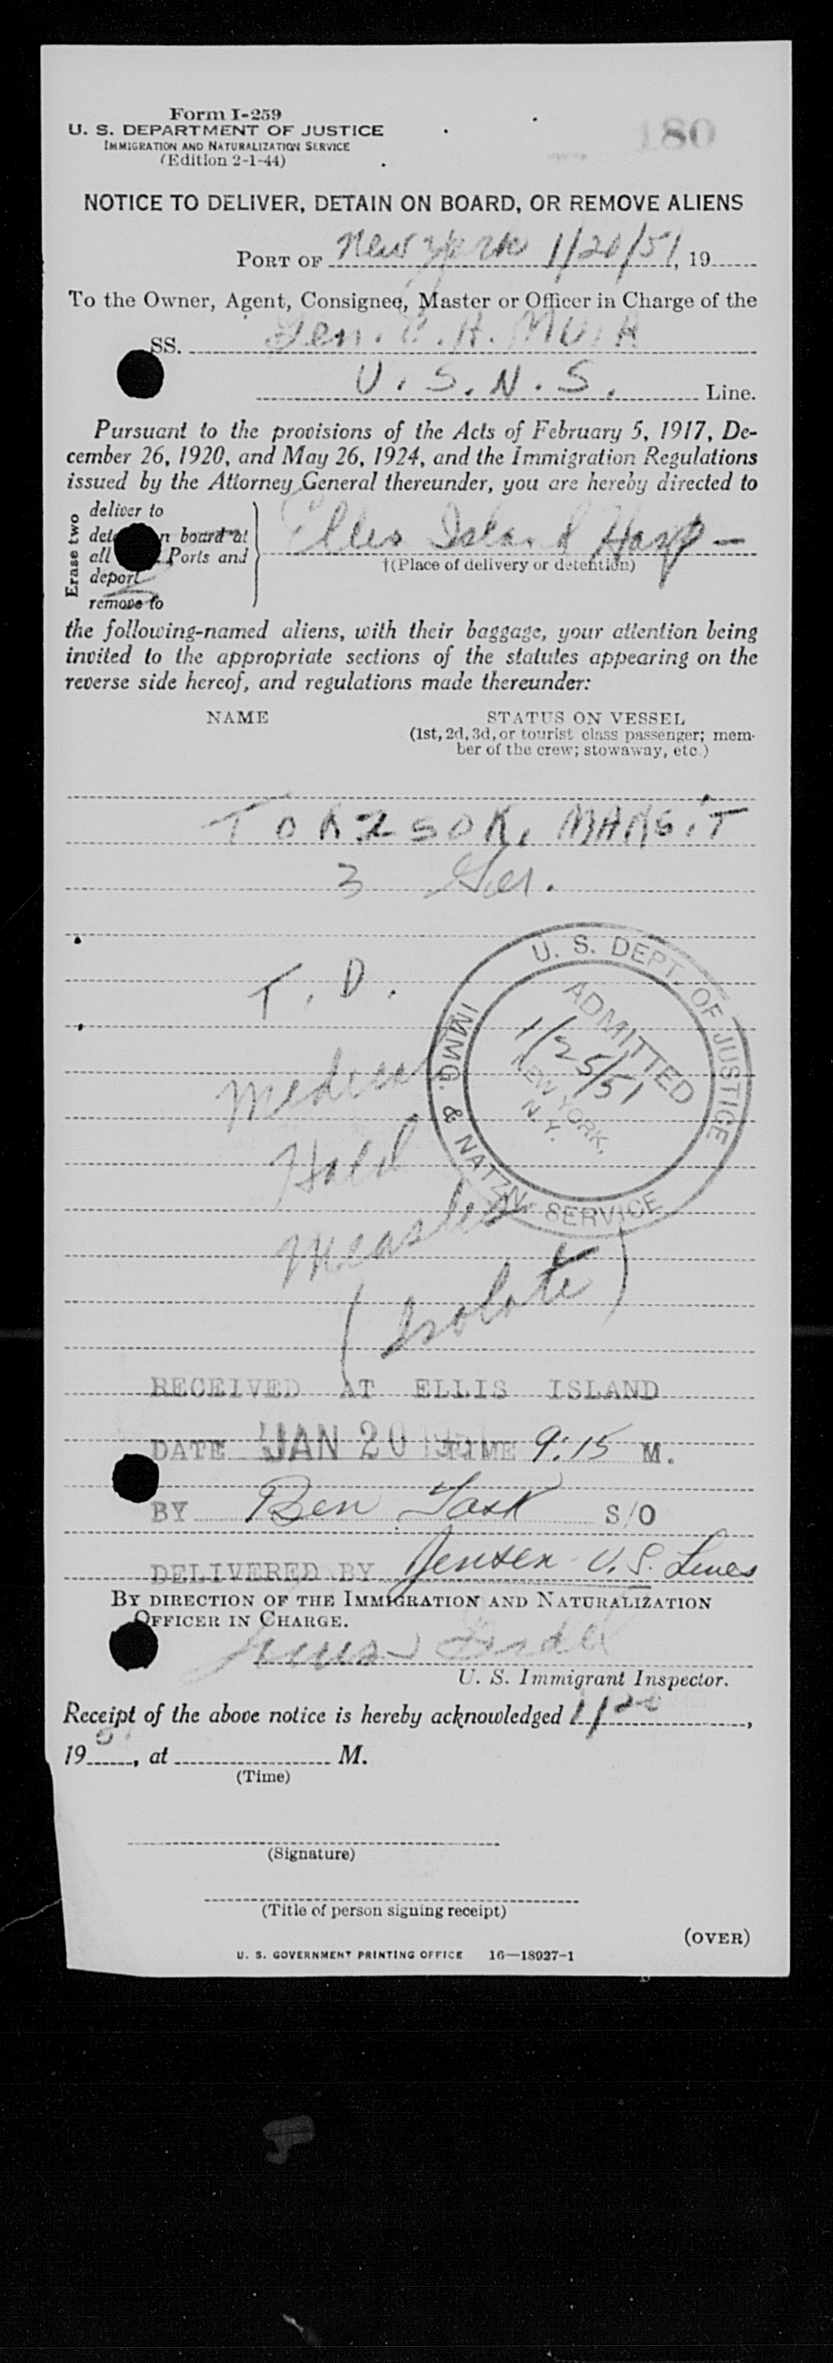 Form I-259
U. S. DEPARTMENT OF JUSTICE
IMMIGRATION AND NATURALIZATION SERVICE
(Edition 2-1-44)
180
NOTICE TO DELIVER, DETAIN ON BOARD, OR REMOVE ALIENS
PORT OF New York 1/20/51, 19
To the Owner, Agent, Consignee, Master or Officer in Charge of the
SS. Gen. C. H. MUIR
U. S. N. S. Line.
Pursuant to the provisions of the Acts of February 5, 1917, De-
cember 26, 1920, and May 26, 1924, and the Immigration Regulations
issued by the Attorney General thereunder, you are hereby directed to
Erase two
deliver to
board at
all Ports and
deport
remove to
Ellis Island Hosp —
†(Place of delivery or detention)
the following-named aliens, with their baggage, your attention being
invited to the appropriate sections of the statutes appearing on the
reverse side hereof, and regulations made thereunder:
NAME STATUS ON VESSEL
(1st, 2d, 3d, or tourist class passenger; mem-
ber of the crew; stowaway, etc.)
TORZSOK, MARGIT
3 Ger.
T. D.
Medical
Hold
Measles
(Isolate)
U. S. DEPT. OF JUSTICE
ADMITTED
1/25/51
NEW YORK,
N. Y.
IMMG. & NATZN. SERVICE
RECEIVED AT ELLIS ISLAND
DATE JAN 20 1951 TIME 9:15 M.
BY Ben Task S/O
DELIVERED BY Jensen U.S. Lines
BY DIRECTION OF THE IMMIGRATION AND NATURALIZATION
OFFICER IN CHARGE.
U. S. Immigrant Inspector.
Receipt of the above notice is hereby acknowledged 1/20,
19 51, at M.
(Time)
(Signature)
(Title of person signing receipt)
(OVER)
U. S. GOVERNMENT PRINTING OFFICE 16—18927-1